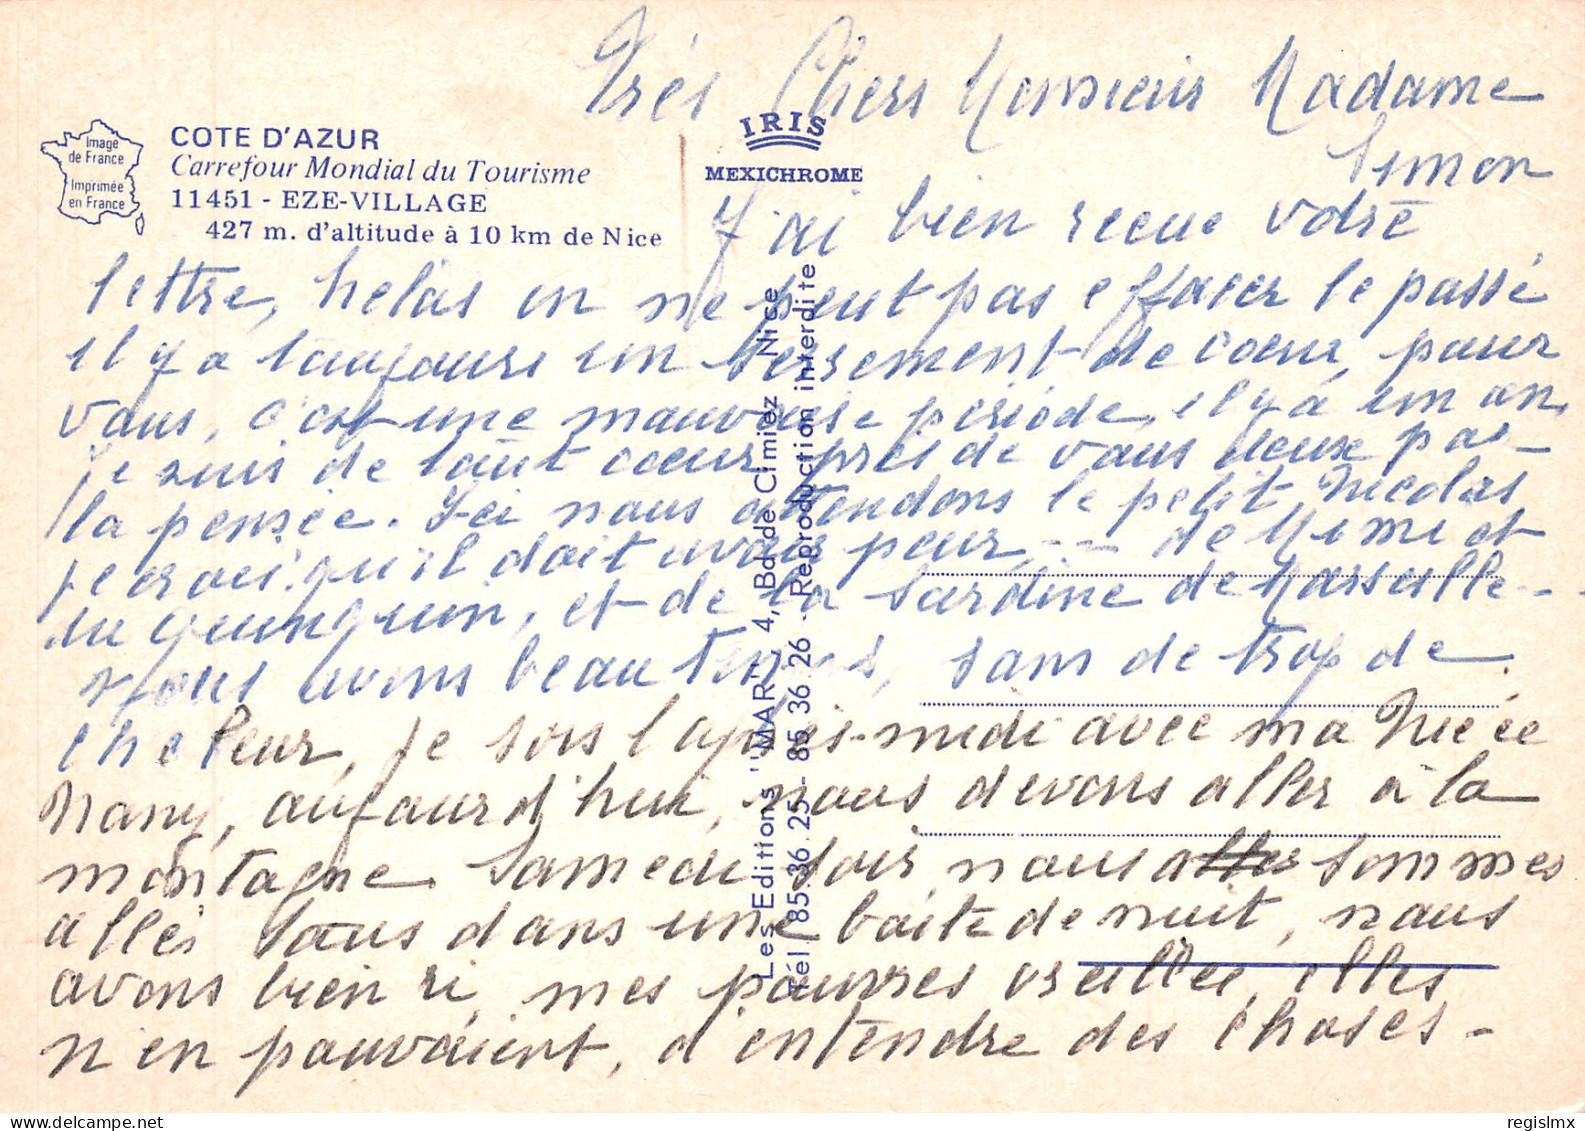 Très Chers Monsieur Madame
Simon
Image
de France
Imprimée
en France
COTE D'AZUR
Carrefour Mondial du Tourisme
11451 - EZE-VILLAGE
427 m. d'altitude à 10 km de Nice
IRIS
MEXICHROME
J'ai bien recue votre
lettre, helas on ne peut pas effacer le passé
il y a toujours un versement de coeur, pour
vous, c'est une mauvaise periode, il y a un an,
je suis de tout coeur près de vous deux par
la pensée. Ici nous attendons le petit Nicolas
je crois qu'il doit avoir peur -- de Mimi et
du et de la Sardine de Marseille --
Nous avons beau temps, sans de trop de
chaleur, je sors l'après-midi avec ma Nièce
Nany, aujourd'hui, nous devons aller à la
montagne Samedi soir, nous sommes
allés tous dans une boite de nuit, nous
avons bien ri, mes pauvres oreilles, elles
n'en pouvaient, d'entendre des choses -
Les Editions "MAR", 4, Bd de Cimiez Nice
Tél. 85.36.25 - 85.36.26 - Reproduction interdite
regislmx
delcampe.net